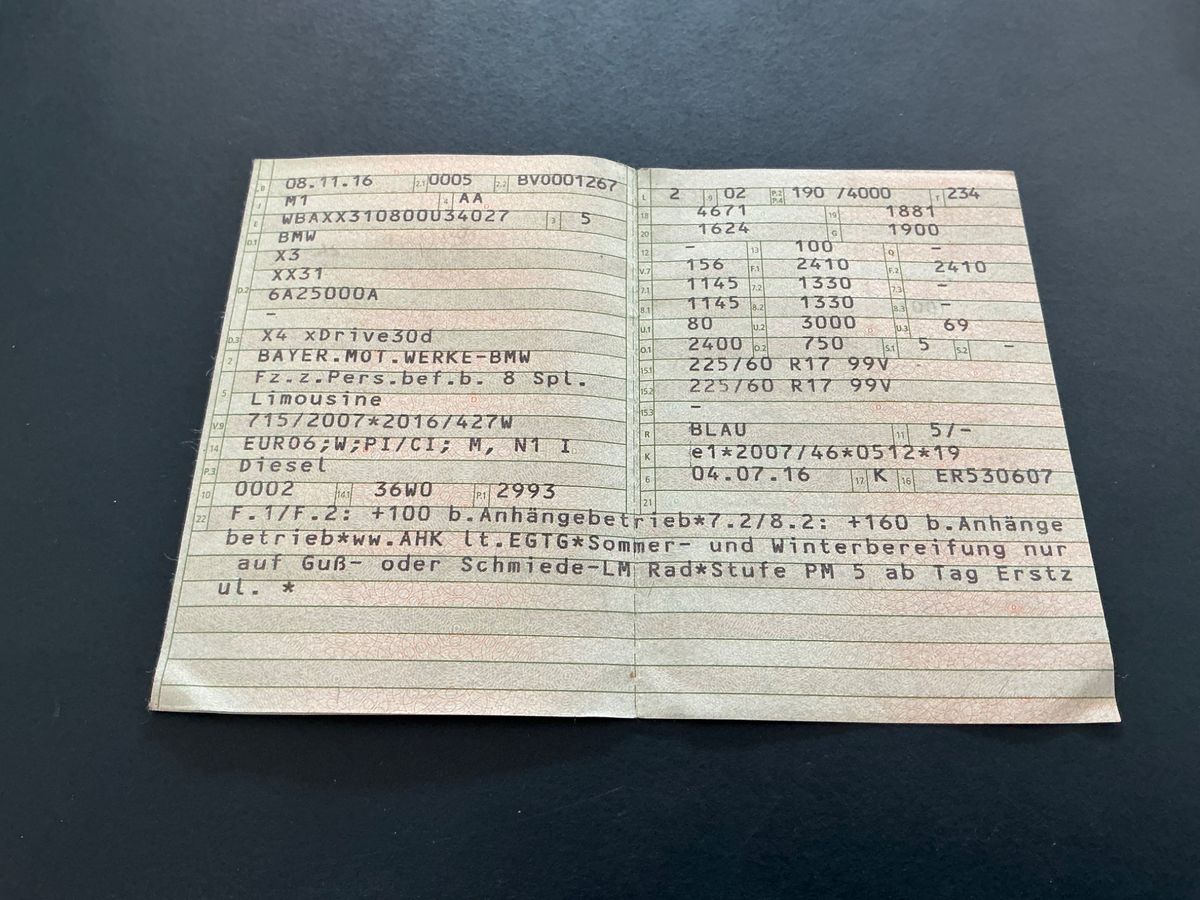 B 08.11.16 2.1 0005 2.2 BV0001267
J M1 4 AA
E WBAXX310800U34027 3 5
D.1 BMW
X3
D.2 XX31
6A25000A
-
D.3 X4 xDrive30d
2 BAYER.MOT.WERKE-BMW
5 Fz.z.Pers.bef.b. 8 Spl.
Limousine
V.9 715/2007*2016/427W
14 EURO6;W;PI/CI; M, N1 I
P.3 Diesel
10 0002 14.1 36W0 P.1 2993
L 2 9 02 P.2 P.4 190 /4000 T 234
18 4671 19 1881
20 1624 G 1900
12 - 13 100 Q -
V.7 156 F.1 2410 F.2 2410
7.1 1145 7.2 1330 7.3 -
8.1 1145 8.2 1330 8.3 -
U.1 80 U.2 3000 U.3 69
O.1 2400 O.2 750 S.1 5 S.2 -
15.1 225/60 R17 99V
15.2 225/60 R17 99V
15.3 -
R BLAU 11 5/-
K e1*2007/46*0512*19
6 04.07.16 17 K 16 ER530607
21
22 F.1/F.2: +100 b.Anhängebetrieb*7.2/8.2: +160 b.Anhänge
betrieb*ww.AHK lt.EGTG*Sommer- und Winterbereifung nur
auf Guß- oder Schmiede-LM Rad*Stufe PM 5 ab Tag Erstz
ul. *